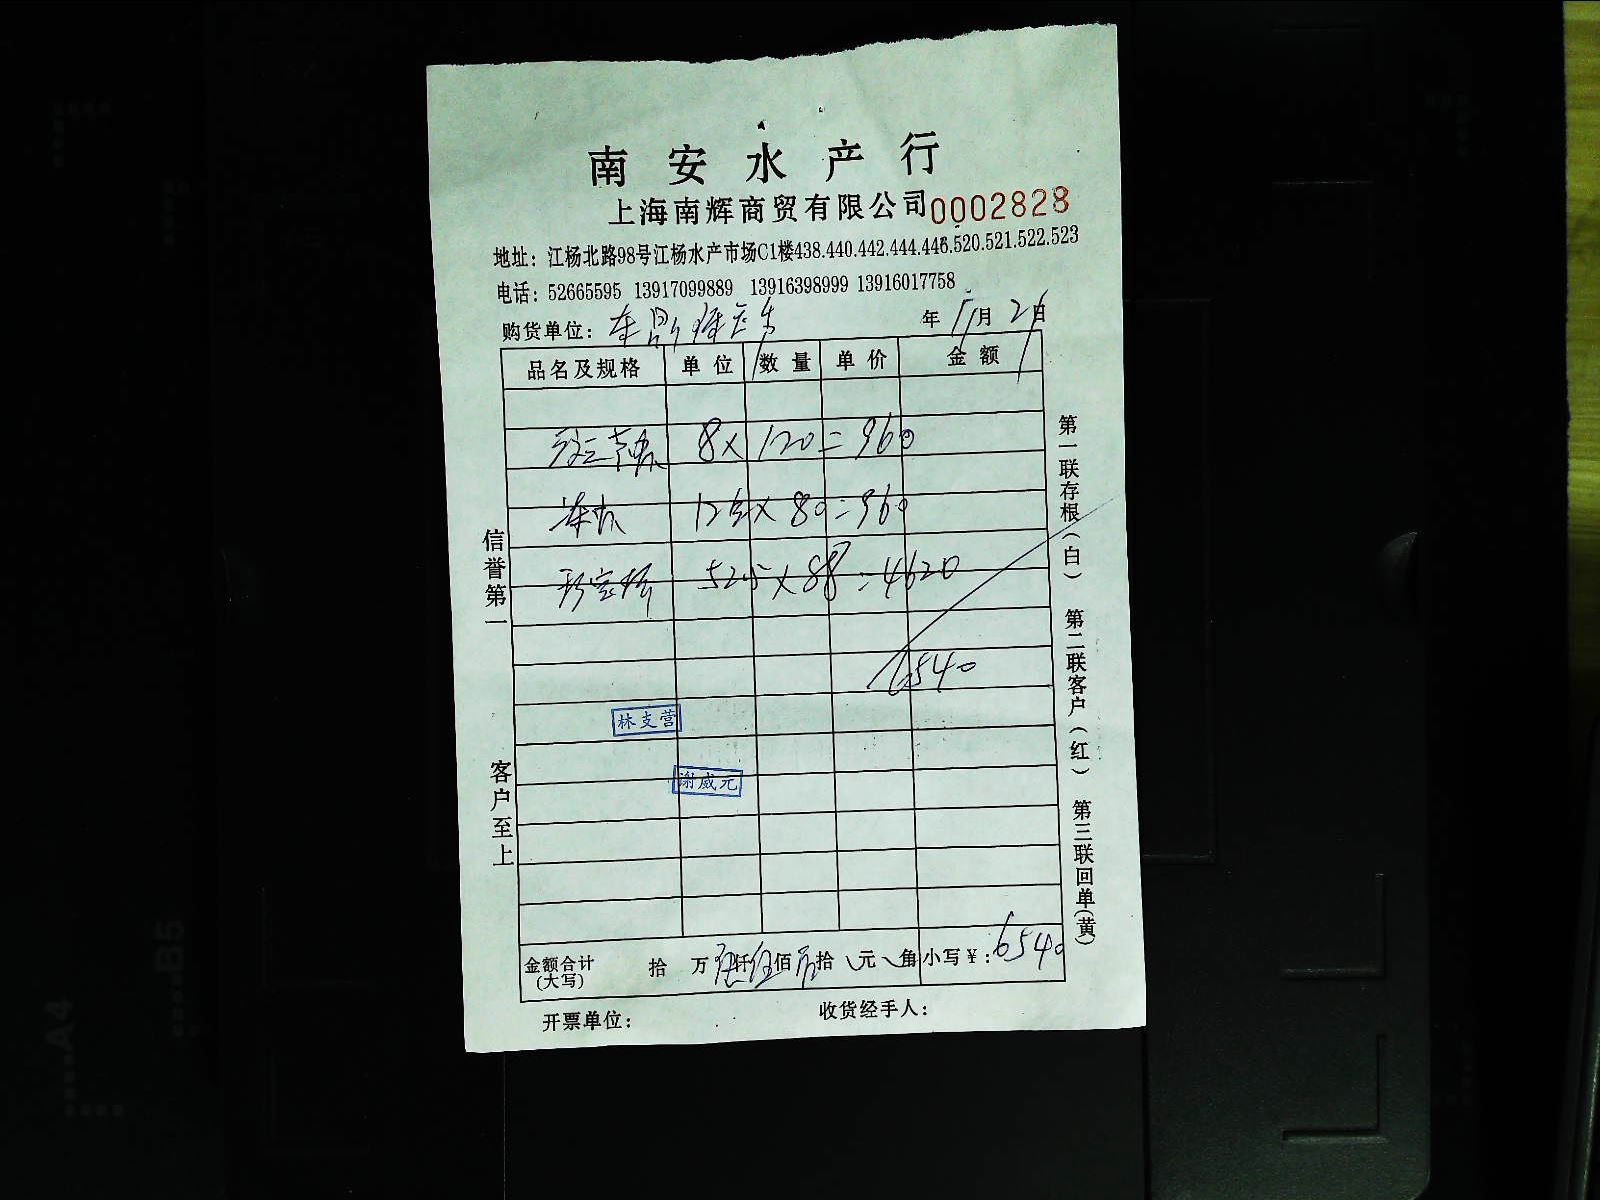 南安水产行
上海南辉商贸有限公司 0002828
地址：江杨北路98号江杨水产市场C1楼438.440.442.444.446.520.521.522.523
电话：52665595 13917099889 13916398999 13916017758
购货单位： 年 11月 21日
品名及规格 单位 数量 单价 金额
8 x 120 = 960
12 x 80 = 960
525 x 88 = 4620
6540
林支营
谢威元
金额合计(大写) 拾 万 仟 伍 佰 拾 元 角 小写￥：6540
开票单位： 收货经手人：
信誉第一 客户至上
第一联存根（白） 第二联客户（红） 第三联回单（黄）